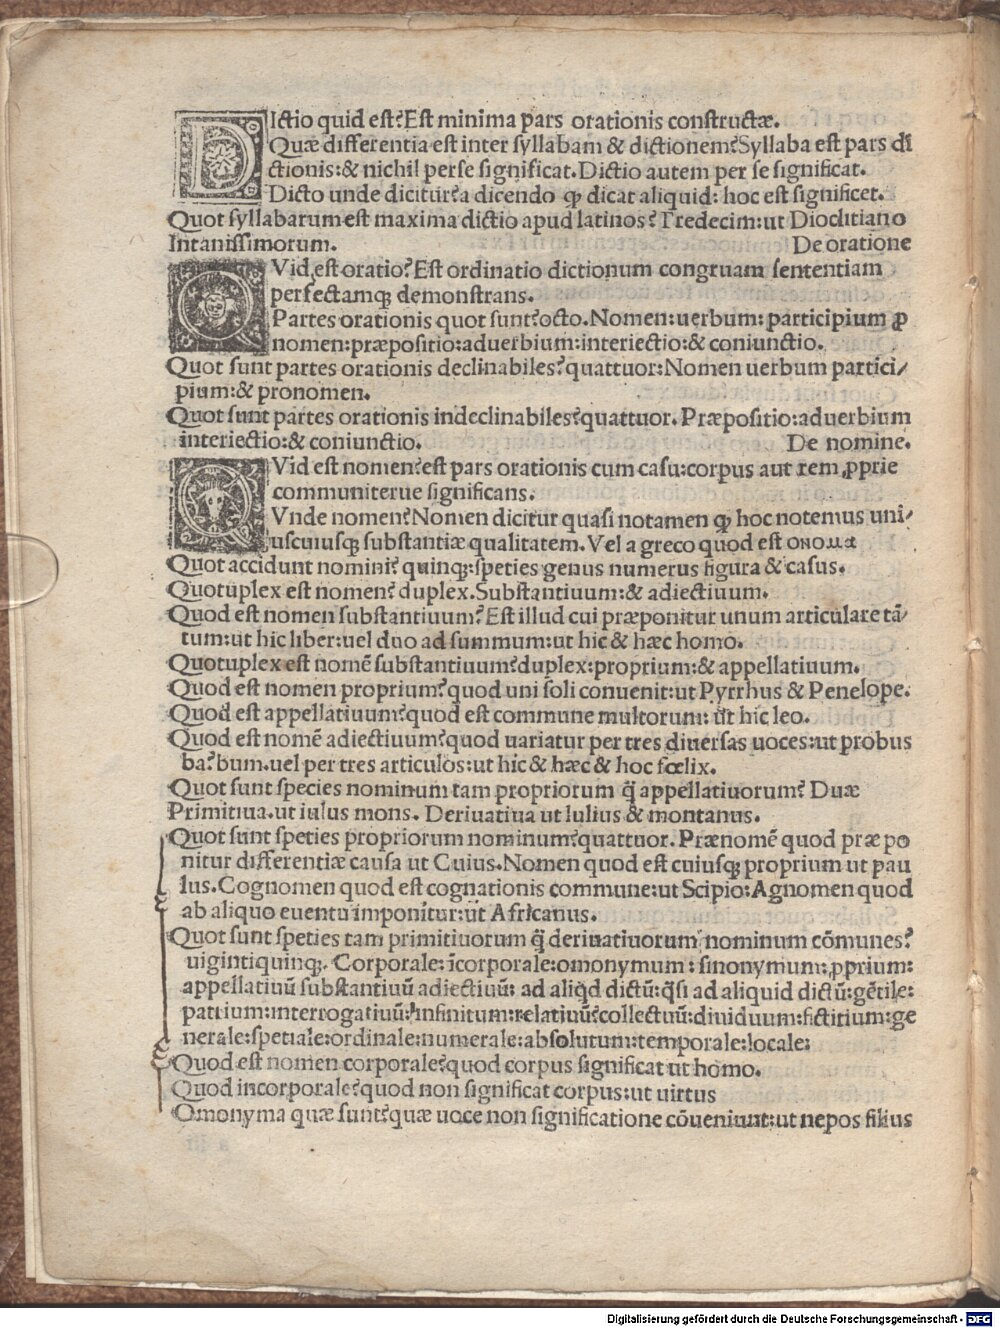 DIctio quid est?Est minima pars orationis constructæ.
Quæ differentia est inter syllabam & dictionem?Syllaba est pars di
ctionis:& nichil perse significat.Dictio autem per se significat.
Dicto unde dicitur?a dicendo ꝙ dicat aliquid: hoc est significet.
Quot syllabarum est maxima dictio apud latinos?Tredecim:ut Dioclitiano
Intanissimorum. De oratione
QVid est oratio?Est ordinatio dictionum congruam sententiam
perfectamqꝫ demonstrans.
Partes orationis quot sunt?octo.Nomen:uerbum:participium ꝓ
nomen:præpositio:aduerbium:interiectio:& coniunctio.
Quot sunt partes orationis declinabiles?quattuor:Nomen uerbum partici/
pium:& pronomen.
Quot sunt partes orationis indeclinabiles?quattuor.Præpositio:aduerbium
interiectio:& coniunctio. De nomine.
QVid est nomen?est pars orationis cum casu:corpus aut rem ꝓprie
communiterue significans.
Vnde nomen?Nomen dicitur quasi notamen ꝙ hoc notemus uni/
uscuiusqꝫ substantiæ qualitatem.Vel a greco quod est ονομα
Quot accidunt nomini?quinqꝫ:speties genus numerus figura & casus.
Quotuplex est nomen?duplex.Substantiuum:& adiectiuum.
Quod est nomen substantiuum?Est illud cui præponitur unum articulare tā/
tum:ut hic liber:uel duo ad summum:ut hic & hæc homo.
Quotuplex est nomē substantiuum?duplex:proprium:& appellatiuum.
Quod est nomen proprium?quod uni soli conuenit:ut Pyrrhus & Penelope.
Quod est appellatiuum?quod est commune multorum: ut hic leo.
Quod est nomē adiectiuum?quod uariatur per tres diuersas uoces:ut probus
ba?bum.uel per tres articulos:ut hic & hæc & hoc fœlix.
Quot sunt species nominum tam propriorum q̃ appellatiuorum? Duæ
Primitiua.ut iulus mons. Deriuatiua ut Iulius & montanus.
Quot sunt speties propriorum nominum?quattuor. Prænomē quod præpo
nitur differentiæ causa ut Cuius.Nomen quod est cuiusqꝫ proprium ut pau
lus.Cognomen quod est cognationis commune:ut Scipio:Agnomen quod
ab aliquo euentu imponitur:ut Africanus.
Quot sunt speties tam primitiuorum q̃ deriuatiuorum nominum cōmunes?
uigintiquinqꝫ. Corporale:īcorporale:omonymum:sinonymum:ꝓprium:
appellatiuū substantiuū adiectiuū: ad aliqd dictū:qsi ad aliquid dictū:gētile:
patrium:interrogatiuū:infinitum:relatiuū:collectuū:diuiduum:fictitium:ge
nerale:spetiale:ordinale:numerale:absolutum:temporale:locale:
Quod est nomen corporale?quod corpus significat ut homo.
Quod incorporale?quod non significat corpus:ut uirtus
Omonyma quæ sunt?quæ uoce non significatione cōueniunt:ut nepos filius
Digitalisierung gefördert durch die Deutsche Forschungsgemeinschaft - DFG